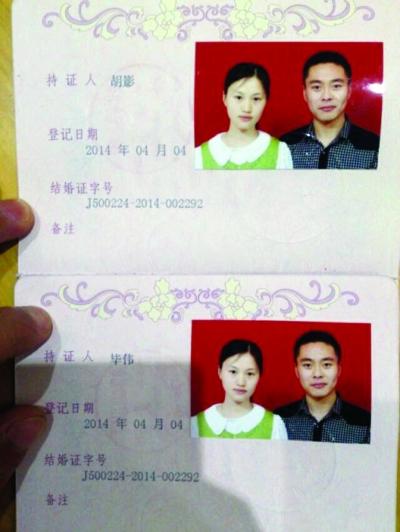 持证人 胡影
登记日期
2014 年 04 月 04
结婚证字号
J500224-2014-002292
备注
持证人 毕伟
登记日期
2014 年 04 月 04
结婚证字号
J500224-2014-002292
备注